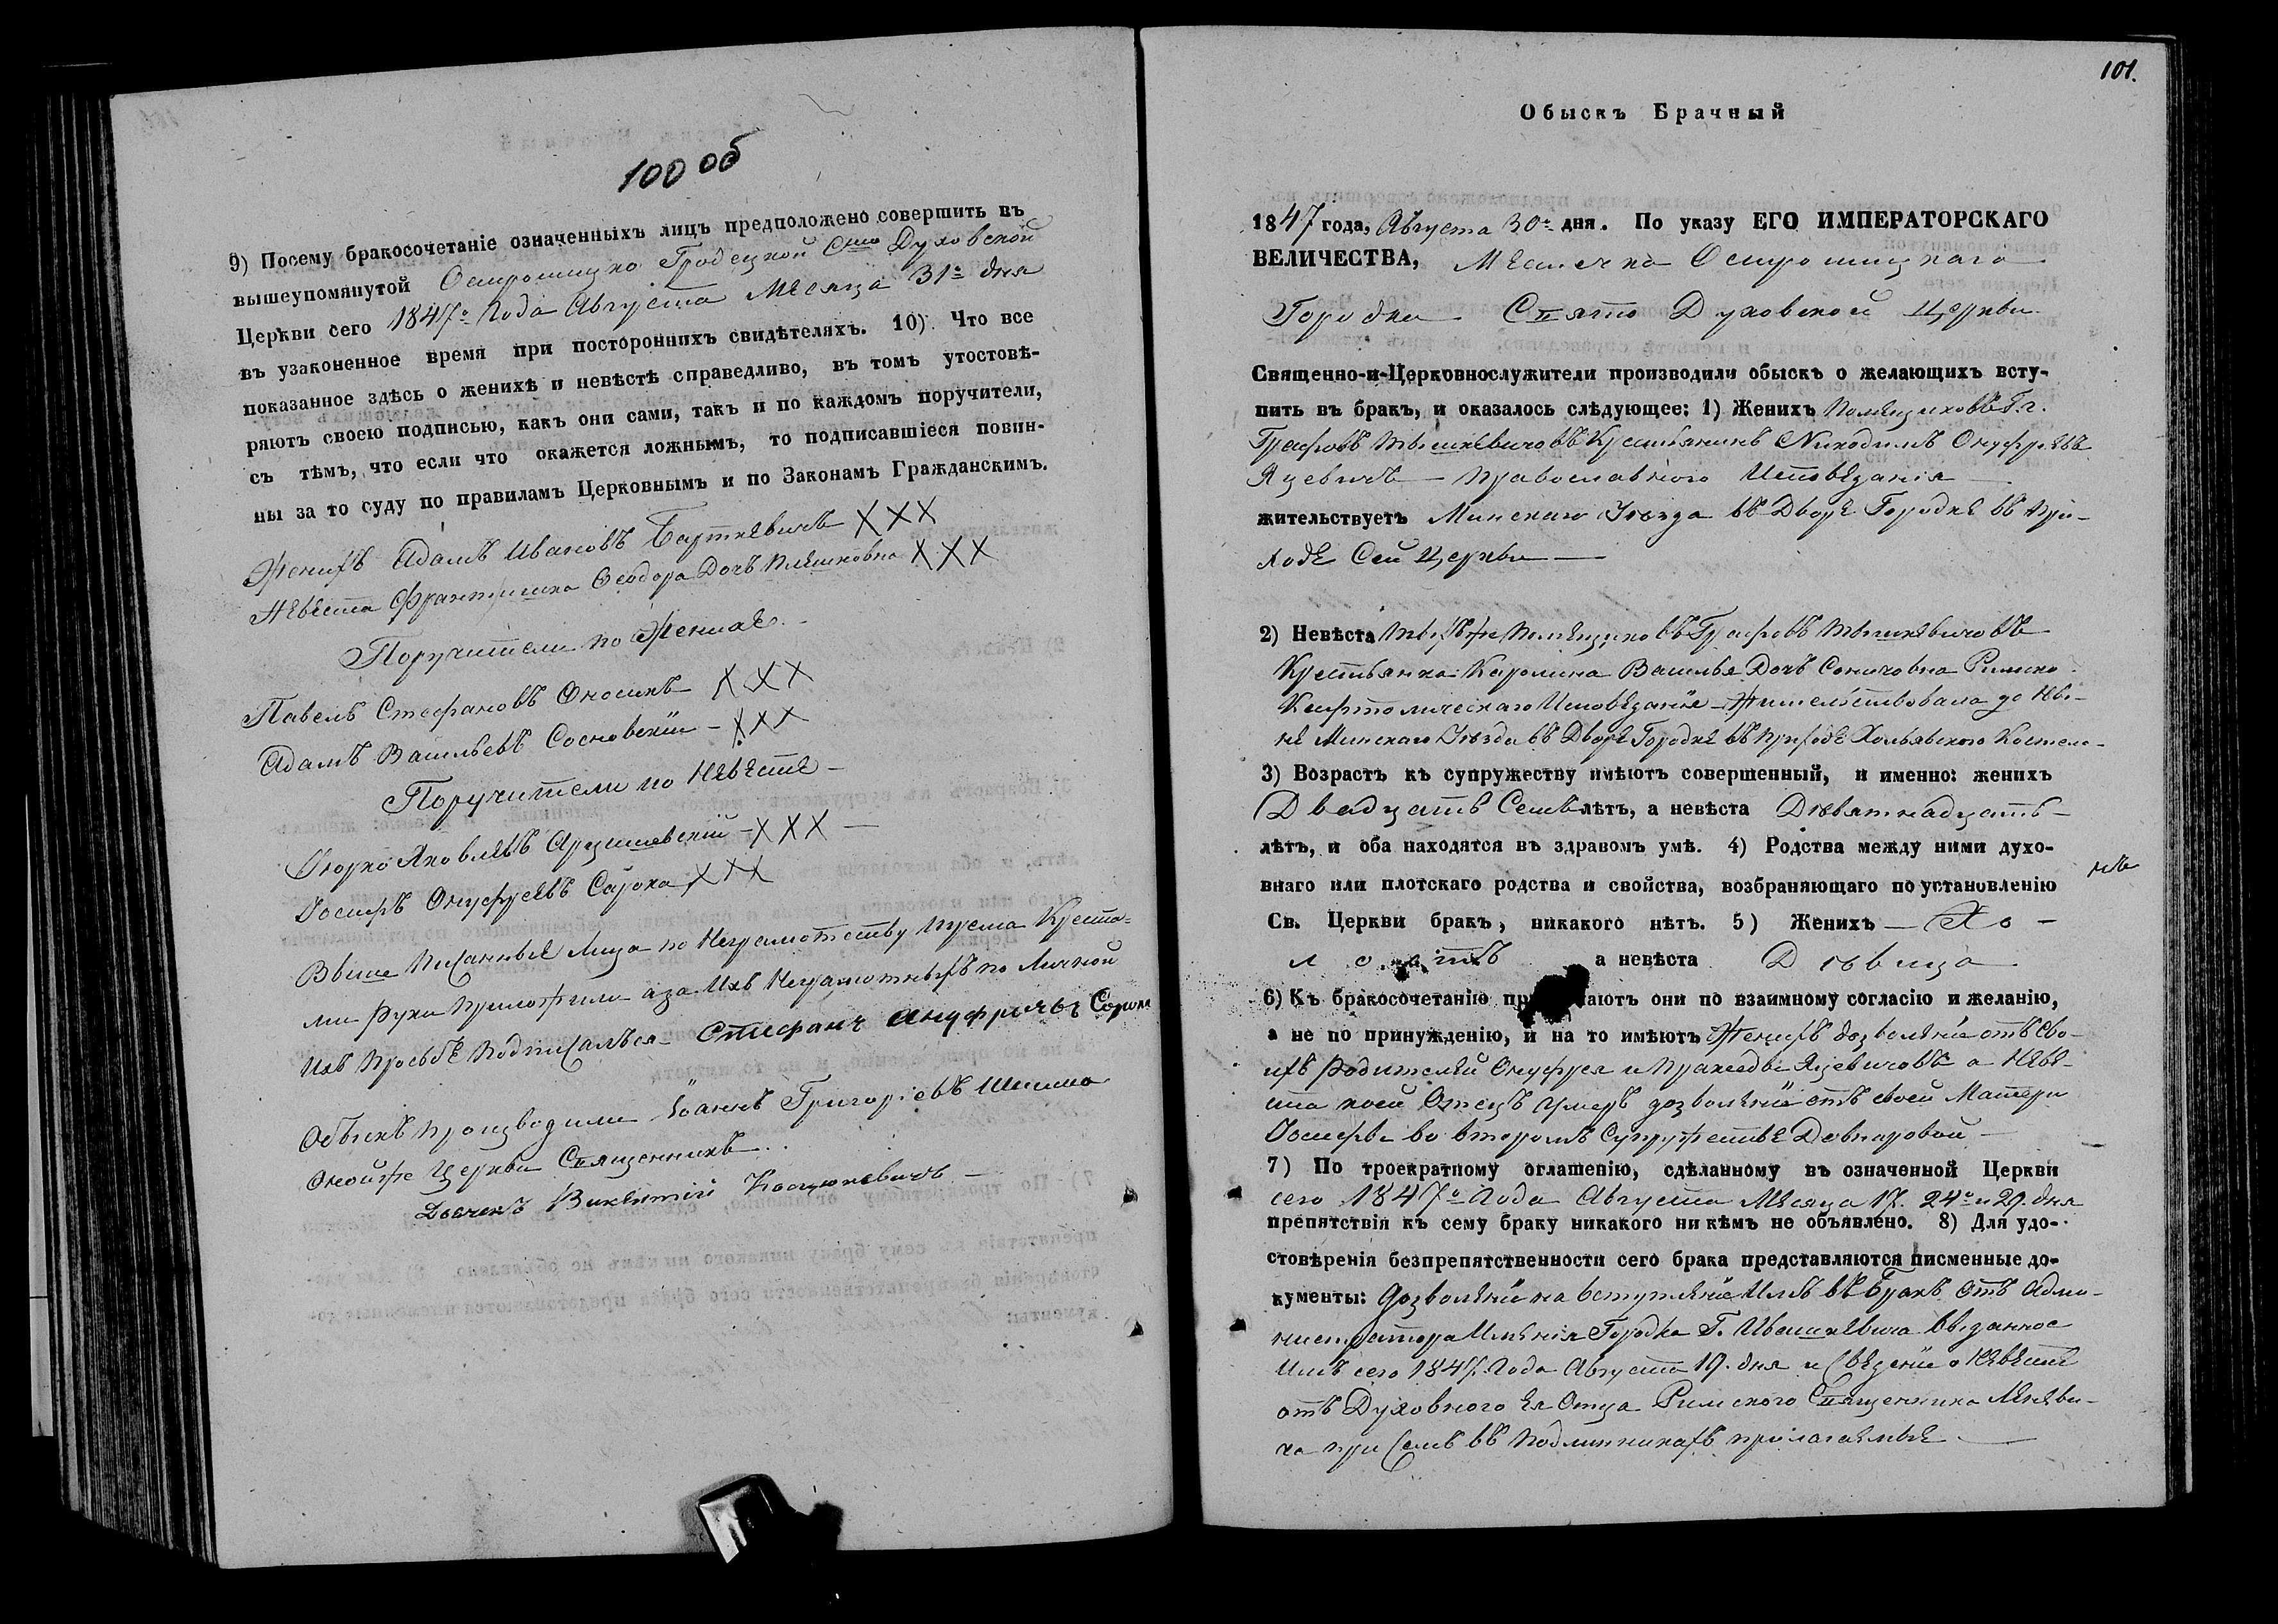 100 об
9) Посему бракосочетаніе означенныхъ лицъ предположено совершить въ
вышеупомянутой Острошицко Гродецкой Свто Духовской
Церкви сего 1847о Года Августа Месяца 31о дня
въ узаконенное время при постороннихъ свидѣтеляхъ. 10) Что все
показанное здѣсь о женихѣ и невѣстѣ справедливо, въ томъ утостовѣ-
ряютъ своею подписью, какъ они сами, такъ и по каждомъ поручители,
съ тѣмъ, что если что окажется ложнымъ, то подписавшіеся повин-
ны за то суду по правиламъ Церковнымъ и по Законамъ Гражданскимъ.
Женихъ Адамъ Ивановъ Барткевичъ ХХХ
Невеста Франтишка Ѳеодора Дочъ ХХХ
Поручители по Женихе
Павелъ Стефановъ Оношкъ ХХХ
Адамъ Васильевъ Сосновскій - ХХХ
Поручители по Невесте -
Яковлевъ Арцишевскій - ХХХ -
Іосифъ Онуфреевъ Сорока ХХХ
Выше Писанные Лица по Неграмотству Трема Креста-
ми Руки Приложили а за Ихъ Неграмотныхъ по Личной
Ихъ Просьбе Подписалъся Стефанъ Ануфрычъ Сорока
Обыскъ Производили Іоаннъ Григоріевъ Шешко
Онойже Церкви Священникъ
Дьячекъ Викентій Костюкевичъ -
101.
Обыскъ Брачный
1847 года, Августа 30о дня. По указу ЕГО ИМПЕРАТОРСКАГО
ВЕЛИЧЕСТВА, Местечка Острошицкаго
Городка Свято Духовской Церкви
Священно-и-Церковнослужители производили обыскъ о желающихъ всту-
пить въ бракъ, и оказалось слѣдующее: 1) Женихъ Помещиковъ Г.г.
Графовъ Тышкевичовъ Крестьянинъ Никодимъ Онуфревъ
Яцевичъ - Православного Исповеданія
жительствуетъ Минскаго Уѣзда въ Дворе Городке въ При-
ходе Сей Церкви
2) Невѣста Техъ же Помещиковъ Графовъ Тышкевичовъ
Крестьянка Каролина Василья Дочъ Римско
Кафтолическаго Исповеданіе - Жительствовала до Ны-
не Минскаго Уѣзда въ Дворе Городке въ Приходе Хольявского Костела
3) Возрастъ къ супружеству имѣютъ совершенный, и именно: женихъ
Двадцать Семь лѣтъ, а невѣста Дѣвятнадцать -
лѣтъ, и оба находятся въ здравомъ умѣ. 4) Родства между ними духо-
внаго или плотскаго родства и свойства, возбраняющаго по установленію
Св. Церкви бракъ, никакого нѣтъ. 5) Женихъ - Хо -
лостъ а невѣста Дѣвица
6) Къ бракосочетанію приступаютъ они по взаимному согласію и желанію,
а не по принужденію, и на то имѣютъ Женихъ дозволеніе отъ Сво-
ихъ Родителей Онуфрея и Праксѣды Яцевичовъ а Неве-
ста коей Отецъ Умеръ дозволеніе отъ своей Матери
Іосифы во второмъ Супружестве Довнаровой
7) По троекратному оглашенію, сдѣланному въ означенной Церкви
сего 1847о Года Августа Месяца 17. 24о и 29. дня
препятствія къ сему браку никакого ни кѣмъ не объявлено. 8) Для удо-
стовѣренія безпрепятственности сего брака представляются писменные до-
кументы: Дозволеніе на вступленіе Имъ въ Бракъ Отъ Адми-
нистратора Именія Городка Г. Ивашкевича выданное
Имъ сего 1847. Года Августа 19. дня и Сведеніе о Невесте
отъ Духовного Ея Отца Римского Священника
ча при Семъ въ Подлинникахъ прилагаемые